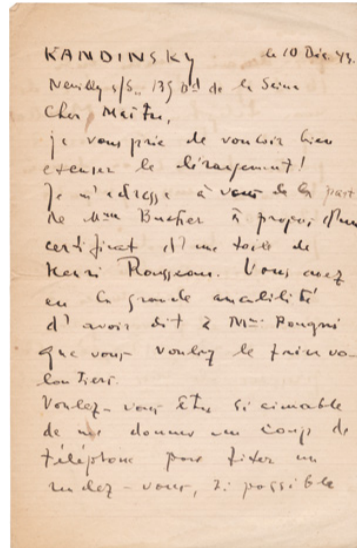 KANDINSKY le 10 Déc. 43.
Neuilly s/S., 135 Bd de la Seine
Cher Maître,
je vous prie de vouloir bien
excuser le dérangement!
Je m'adresse à vous de la part
de Mme Bucher à propos d'un
certificat d'une toile de
Henri Rousseau. Vous avez
eu la grande amabilité
d'avoir dit à Mme
que vous voulez le faire vo-
lontiers.
Voulez-vous être si aimable
de me donner un coup de
téléphone pour fixer un
rendez-vous, si possible